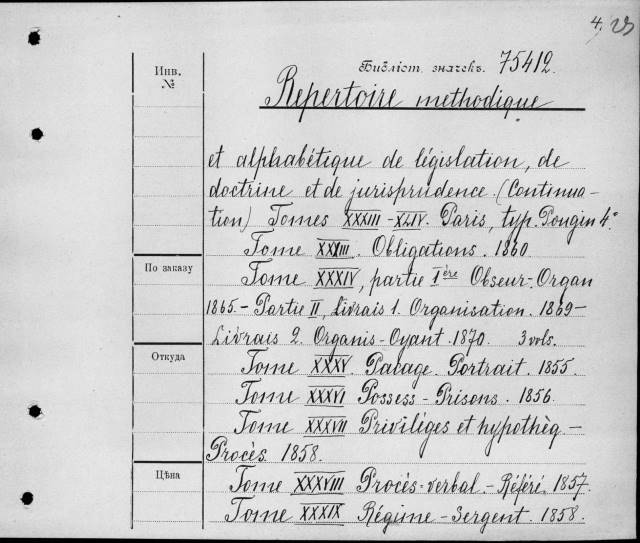 4. 23
Библіот. значекъ. 75412.
Инв.
№
Repertoire methodique
et alphabétique de législation, de
doctrine et de jurisprudence. (Continua-
tion) Tomes XXXIII - XLIV. Paris, typ. Pougin 4°
Tome XXXIII. Obligations. 1860
По заказу
Tome XXXIV, partie Ière Obseur-Organ
1865.- Partie II, Livrais 1. Organisation. 1869-
Livrais 2. Organis-Oyant. 1870. 3 vols.
Откуда
Tome XXXV. Pacage. Portrait. 1855.
Tome XXXVI Possess-Prisons. 1856.
Tome XXXVII Privilèges et hypothèq.-
Procès. 1858.
Цѣна
Tome XXXVIII Procès-verbal.-Référé. 1857.
Tome XXXIX Régime-Sergent. 1858.